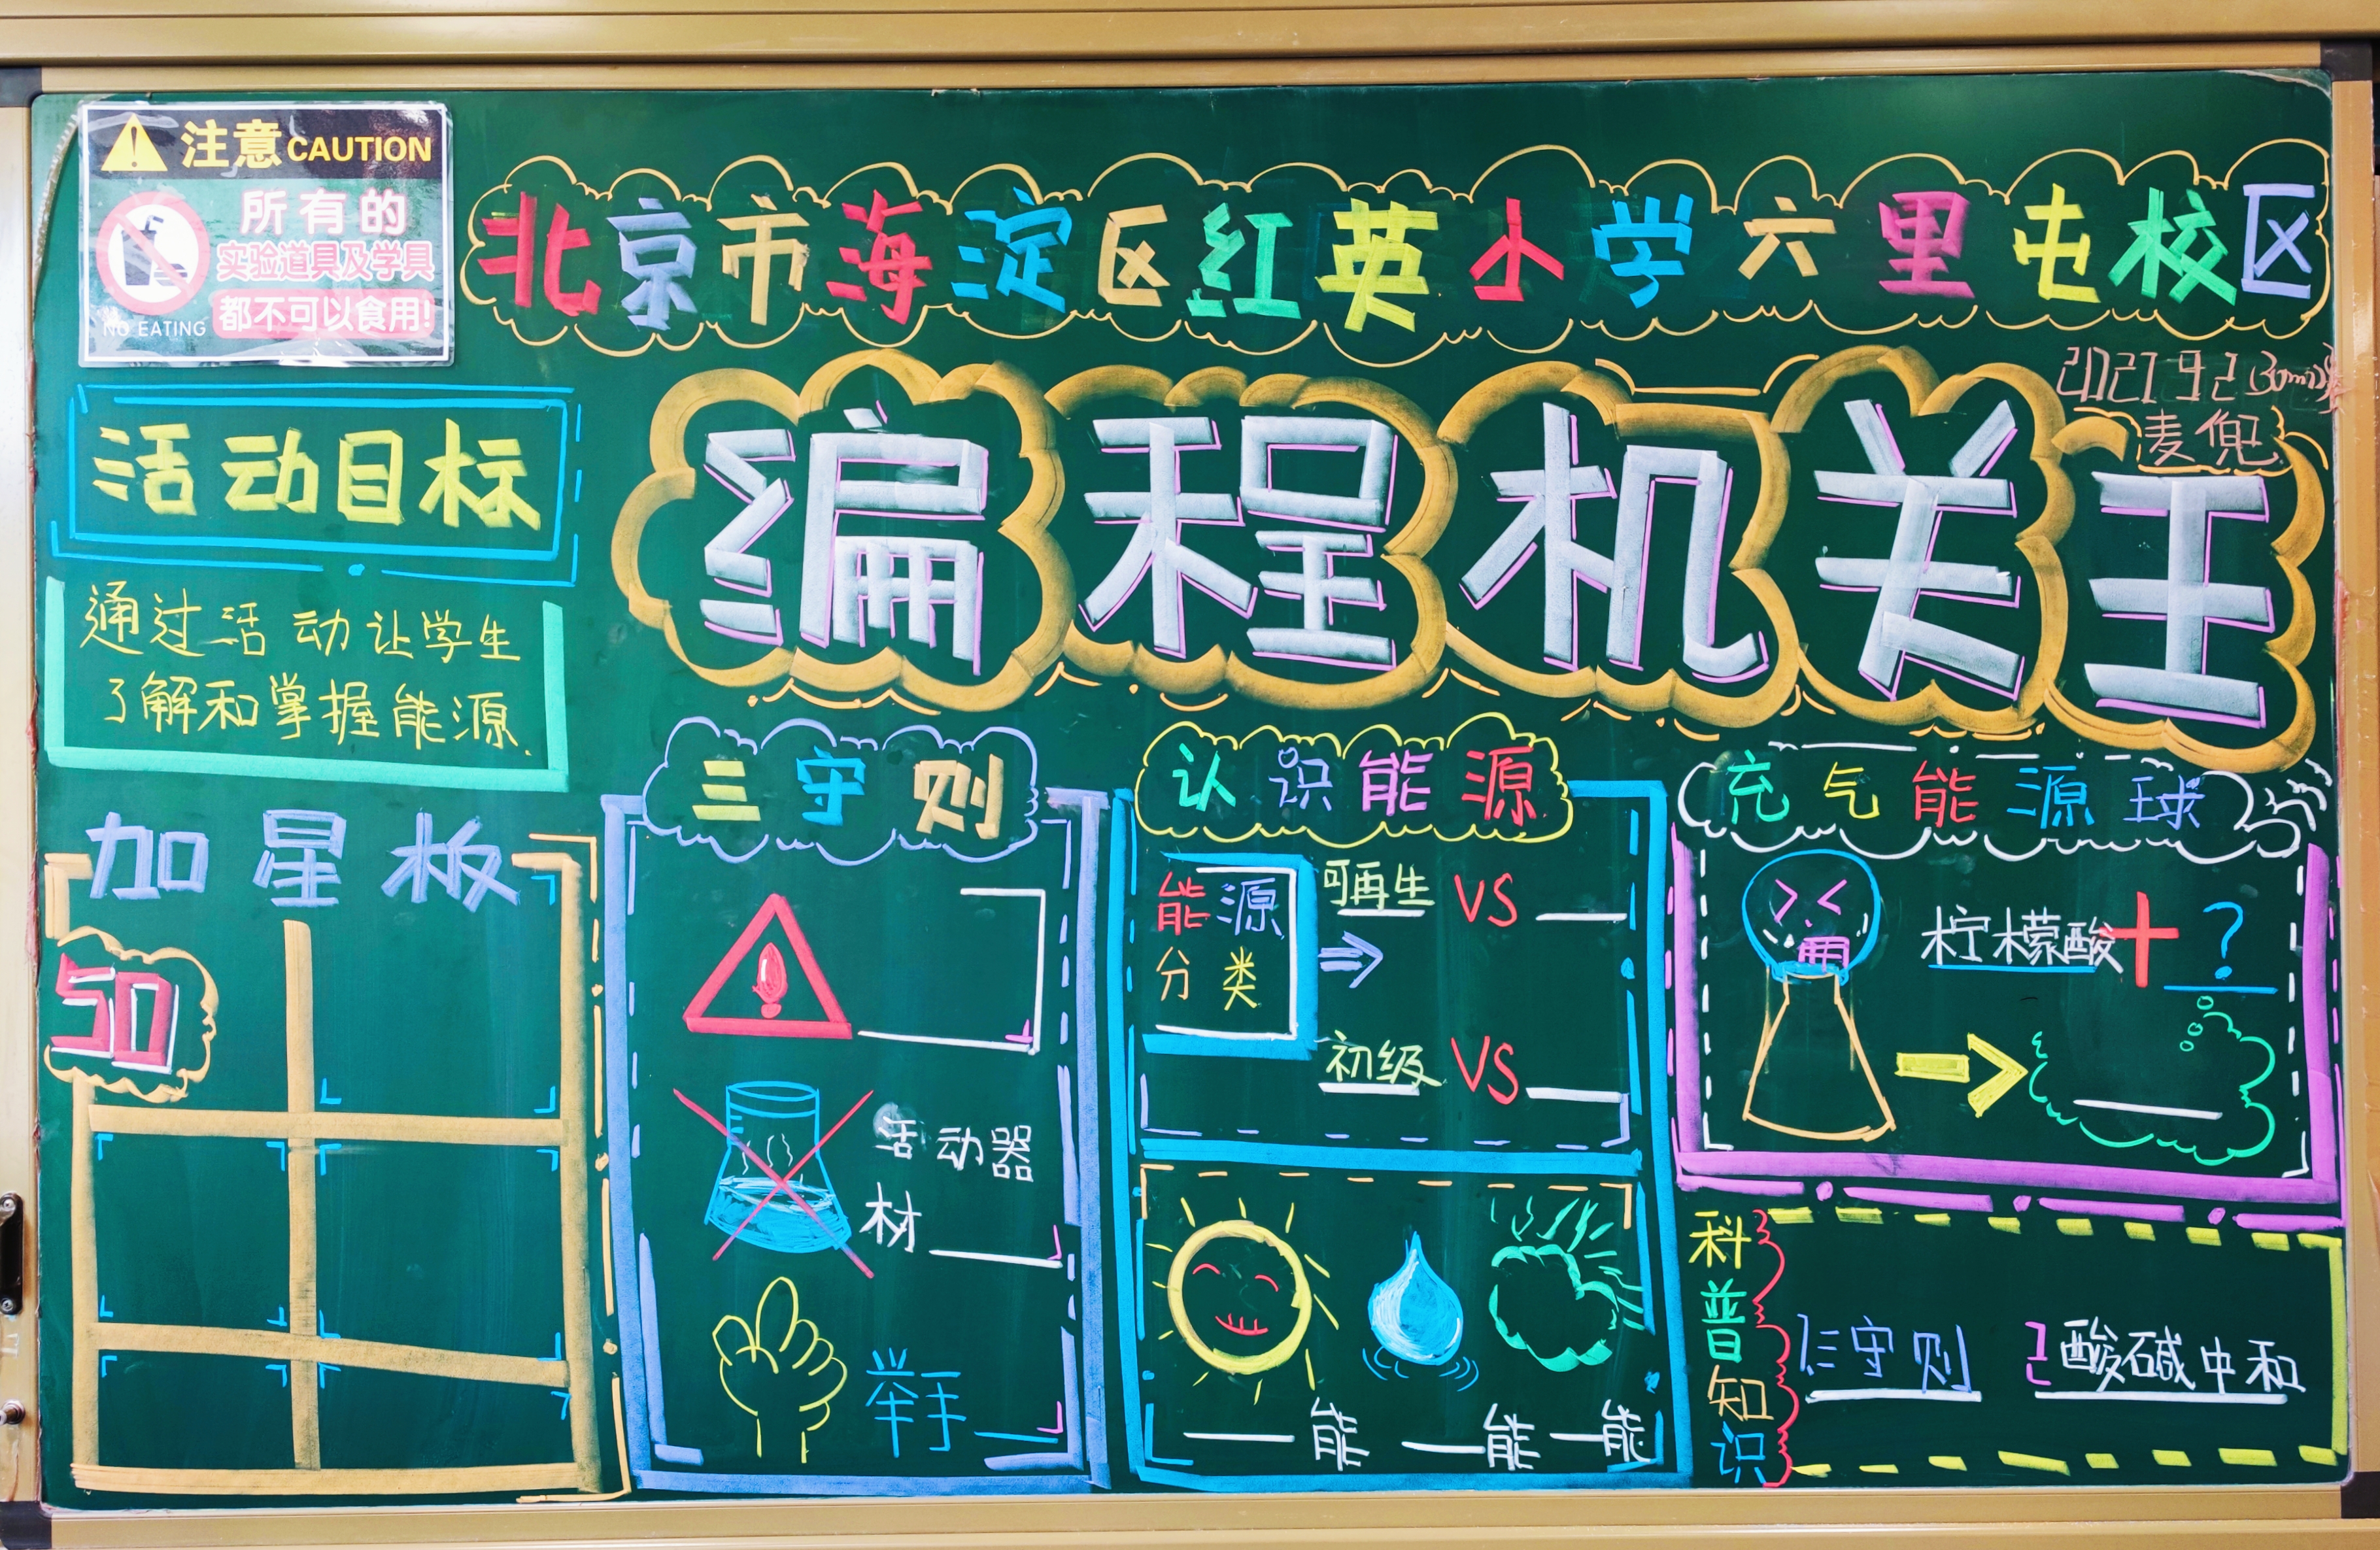 注意CAUTION
所有的
实验道具及学具
都不可以食用!
NO EATING
北京市海淀区红英小学六里屯校区
编程机关王
麦兜
活动目标
通过活动让学生
了解和掌握能源.
加星板
50
三守则
活动器
材
举手
认识能源
能源
分类
可再生 VS
初级 VS
能 能 能
充气能源球
柠檬酸+?
科普知识
1三守则 2酸碱中和